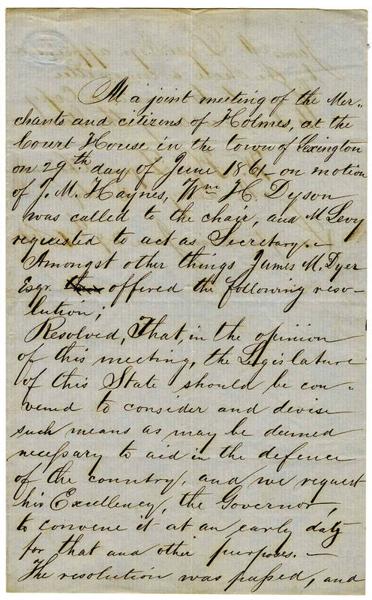 At a joint meeting of the Mer-
chants and citizens of Holmes, at the
Court House in the town of Lexington
on 29th day of June 1861 - on motion
of J. M. Haynes, Wm H. Dyson
was called to the chair, and M Levy
requested to act as Secretary. -
Amongst other things James M. Dyer
Esqr. offered the following reso-
lution;
Resolved, That, in the opinion
of this meeting, the Legislature
of this State should be con-
vened to consider and devise
such means as may be deemed
necessary to aid in the defence
of the country, and we request
his Excellency, the Governor,
to convene it at an early day
for that and other purposes. -
The resolution was passed, and